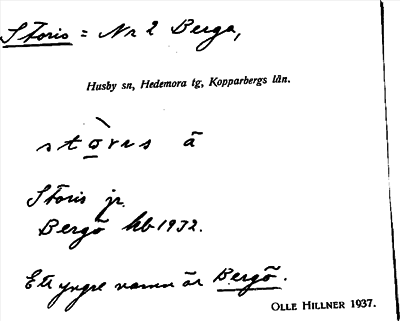 Storis = Nr 2 Berga,
Husby sn, Hedemora tg, Kopparbergs län.
stò̠rɩs ä
Storis jr.
Bergö kb 1932.
Ett yngre namn är Bergö.
OLLE HILLNER 1937.